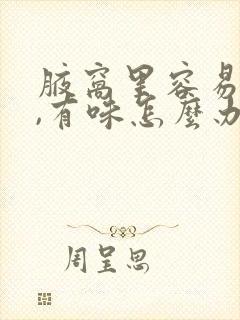 腋窝里容易
,有味怎麽办
周呈思